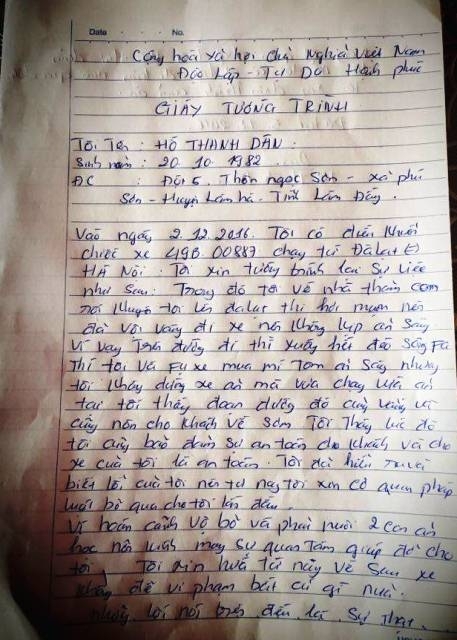 Date No.
Cộng hoà xã hội chủ Nghĩa Việt Nam
Độc Lập - Tự Do Hạnh phúc
GIẤY TƯỜNG TRÌNH
Tôi Tên : HỒ THANH DÂN
Sinh năm : 20.10.1982
ĐC : Đội 5. Thôn ngọc Sơn - xã phú
Sơn - Huyện Lâm hà. Tỉnh Lâm Đồng.
Vào ngày 2.12.2016. Tôi có điều khiển
chiếc xe 49B.00887 chạy từ Đà Lạt
HÀ NỘI. Tôi xin tường trình lại Sự việc
như Sau: Trong đó tôi về nhà thăm con
rồi tôi lên đalat thì hơi muộn nên
đã vội vàng đi xe nên không kịp ăn Sáng
Vì vậy Trên đường đi thì xuống hết đèo Sông Fa
thì tôi và Fụ xe mua mì Tôm ăn Sáng nhưng
tôi không dừng xe ăn mà vừa chạy vừa ăn
tại tôi thấy đoạn đường đó cũng vắng và
cũng nôn cho khách về Sớm. Tôi Thấy lúc đó
tôi cũng bảo đảm sự an toàn cho khách và cho
xe của tôi là an toàn. Tôi đã hiểu và
biết lỗi của tôi nên tôi xin cơ quan pháp
luật bỏ qua cho tôi lần đầu.
Vì hoàn cảnh Vợ bỏ và phải nuôi 2 con ăn
học nên mong sự quan Tâm giúp đỡ cho
tôi. Tôi xin hứa từ nay về Sau
không để vi phạm bất cứ gì nữa.
những lời nói trên đều là Sự Thật.